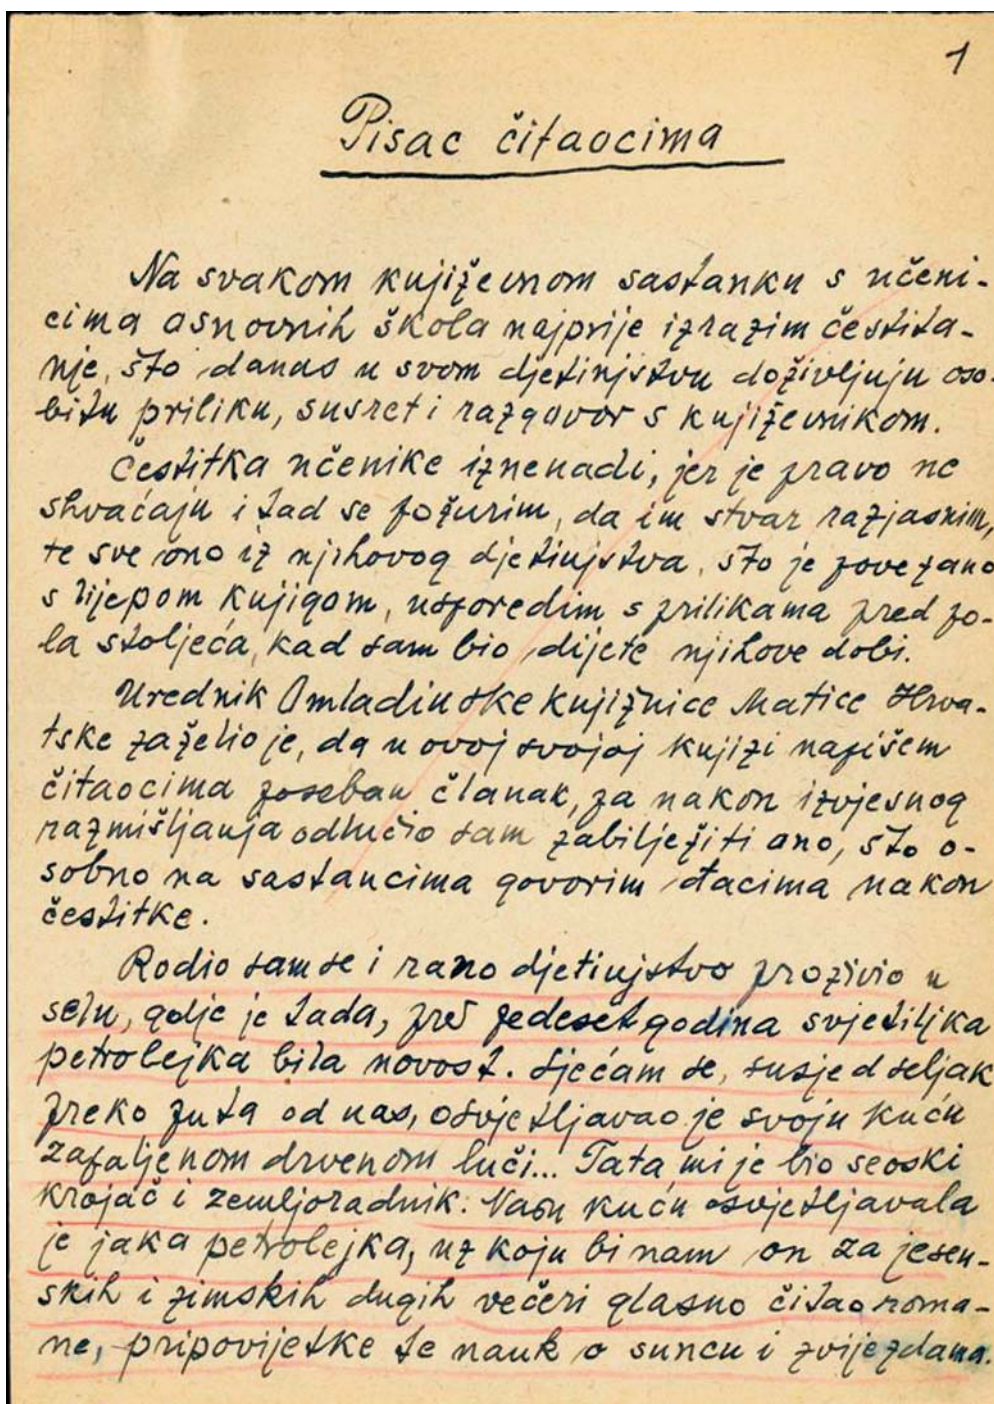 1
Pisac čitaocima
Na svakom književnom sastanku s učeni-
cima osnovnih škola najprije izrazim čestita-
nje, što danas u svom djetinjstvu doživljuju oso-
bitu priliku, susret i razgovor s književnikom.
Čestitka učenike iznenadi, jer je pravo ne
shvaćaju i tad se požurim, da im stvar razjasnim,
te sve ono iz njihovog djetinjstva, što je povezano
s lijepom knjigom, usporedim s prilikama pred po-
la stoljeća, kad sam bio dijete njihove dobi.
Urednik Omladinske knjižnice Matice Hrva-
tske zaželio je, da u ovoj svojoj knjizi napišem
čitaocima poseban članak, pa nakon izvjesnog
razmišljanja odlučio sam zabilježiti ono, što o-
sobno na sastancima govorim đacima nakon
čestitke.
Rodio sam se i rano djetinjstvo proživio u
selu, gdje je tada, pred pedeset godina svjetiljka
petrolejka bila novost. Sjećam se, susjed seljak
preko puta od nas, osvjetljavao je svoju kuću
zapaljenom drvenom luči... Tata mi je bio seoski
krojač i zemljoradnik. Našu kuću osvjetljavala
je jaka petrolejka, uz koju bi nam on za jesen-
skih i zimskih dugih večeri glasno čitao roma-
ne, pripovijetke te nauk o suncu i zvijezdama.